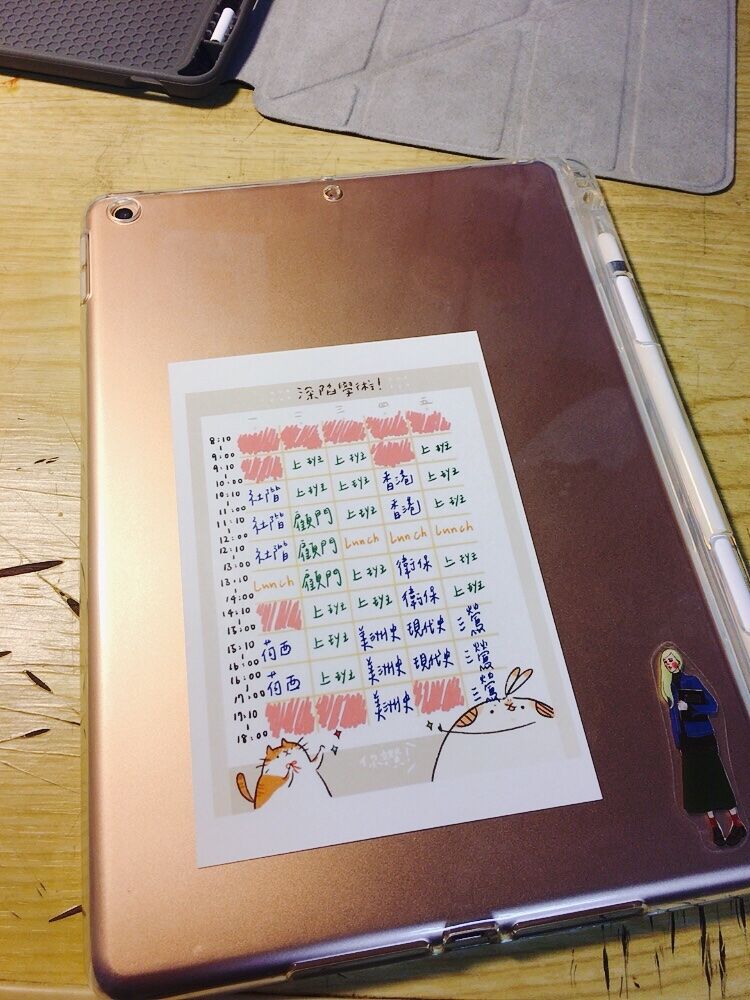 深陷學術!
一 二 三 四 五
8:10
9:00
9:10 上班 上班 上班
10:00
10:10 社階 上班 上班 香港 上班
11:00
11:10 社階 顧門 上班 香港 上班
12:00
12:10 社階 顧門 Lunch Lunch Lunch
13:00
13:10 Lunch 顧門 上班 衛保 上班
14:00
14:10 上班 上班 衛保 上班
15:00
15:10 荷西 上班 美洲史 現代史 三鶯
16:00
16:10 荷西 上班 美洲史 現代史 三鶯
17:00
17:10 美洲史 三鶯
18:00